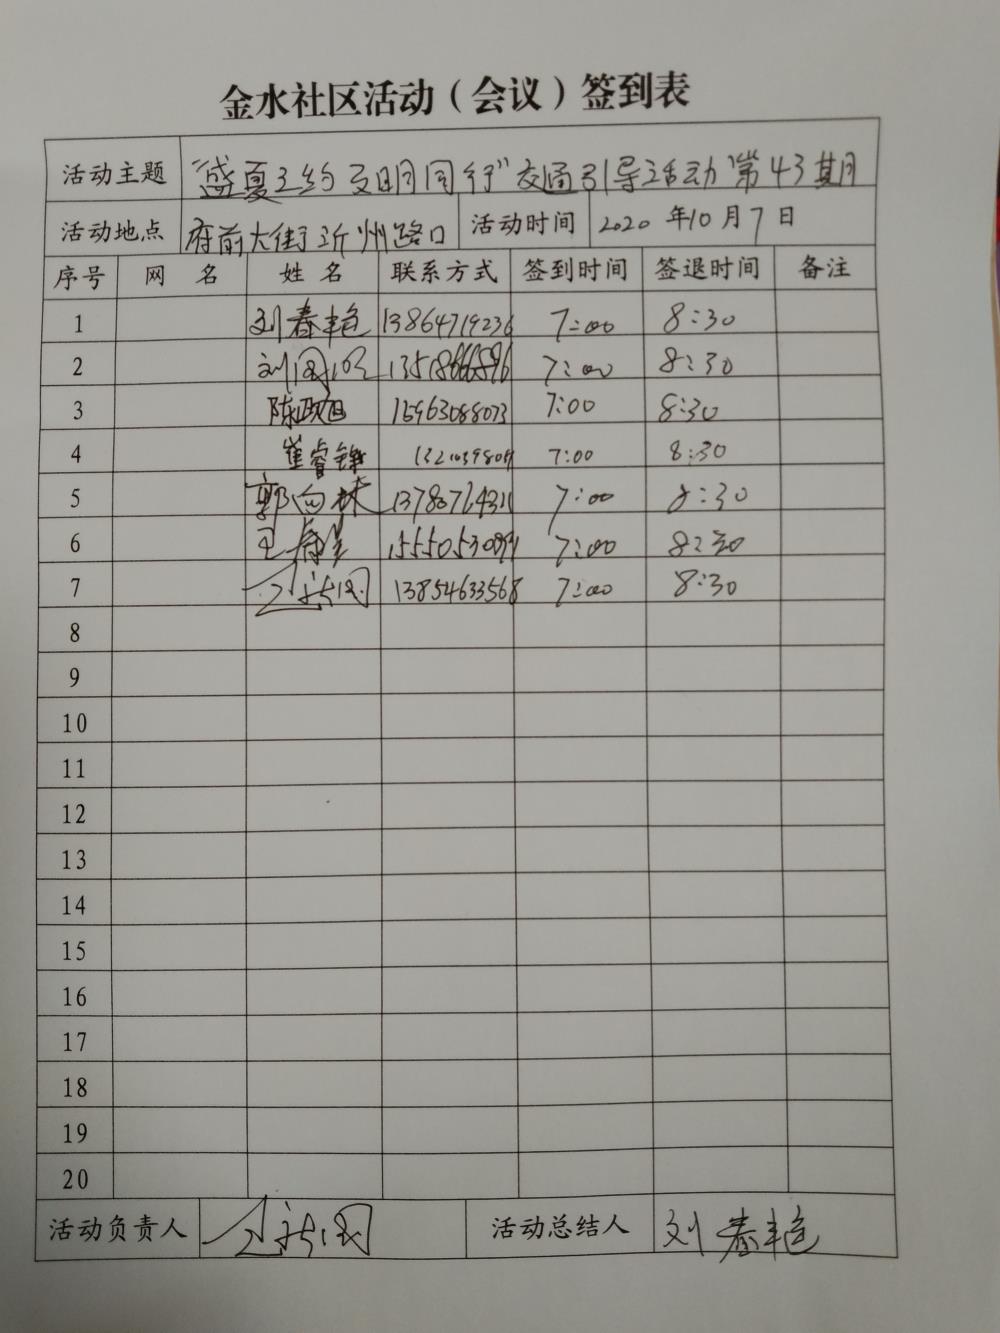 金水社区活动（会议）签到表
活动主题 "盛夏之约 文明同行"交通引导活动第43期
活动地点 府前大街沂州路口 活动时间 2020年10月7日
序号 网名 姓名 联系方式 签到时间 签退时间 备注
1 刘春艳 13864719236 7:00 8:30
2 刘国 7:00 8:30
3 陈政旭 15963088073 7:00 8:30
4 崔睿锋 7:00 8:30
5 郭向林 7:00 8:30
6 王 7:00 8:30
7 13854633568 7:00 8:30
8
9
10
11
12
13
14
15
16
17
18
19
20
活动负责人 活动总结人 刘春艳